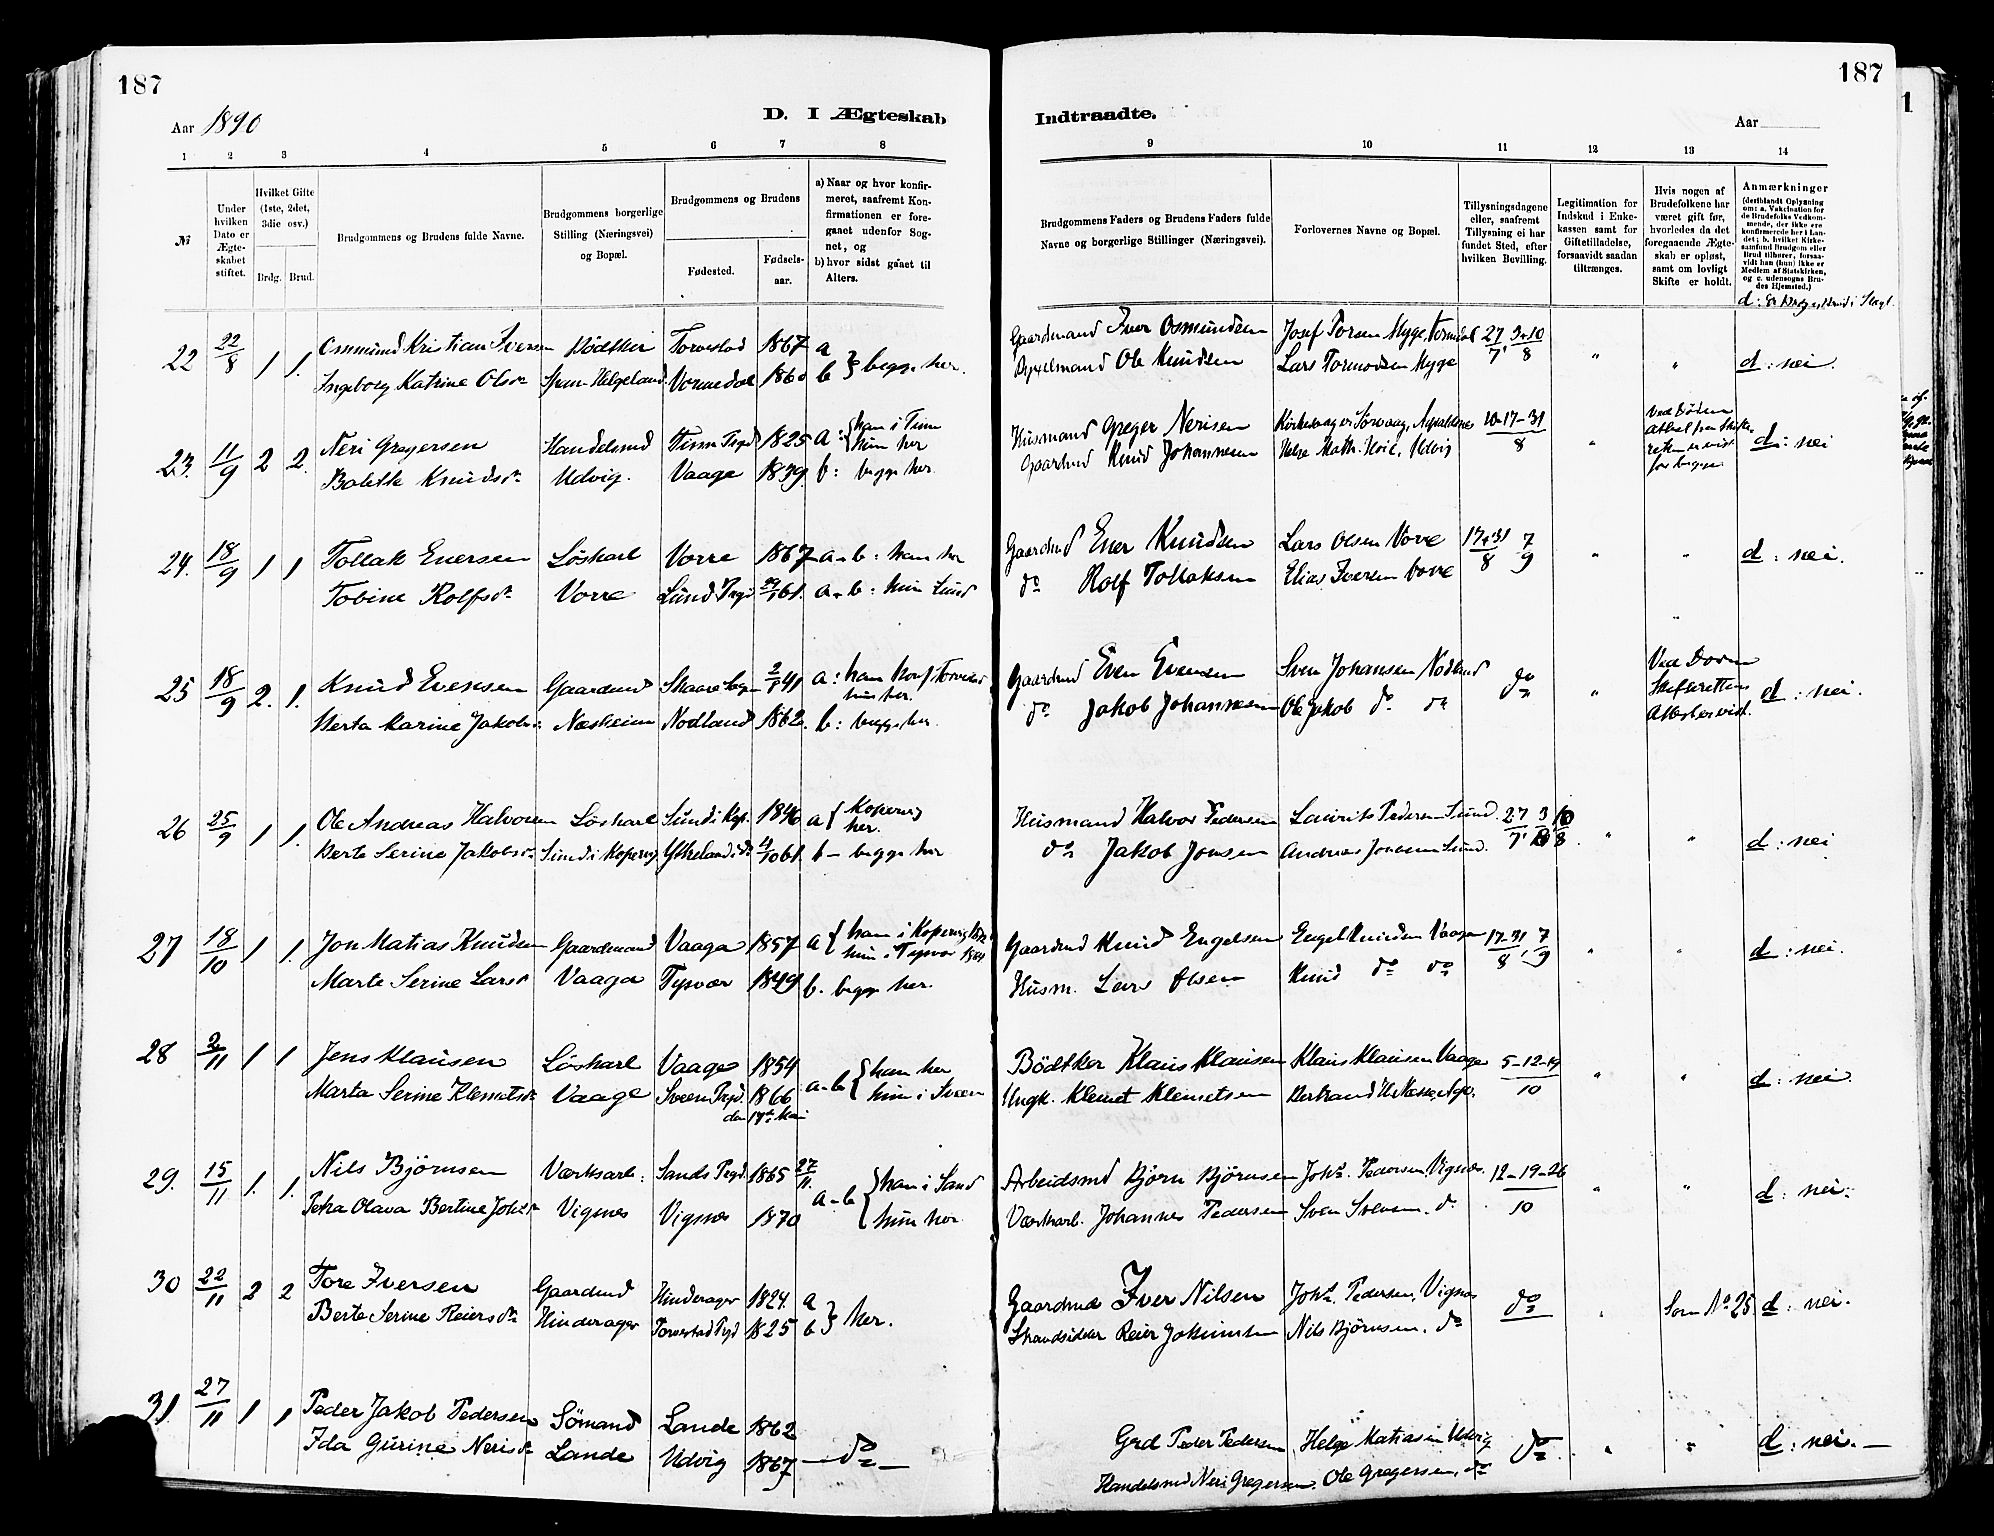 187
187
1
Aar 1890
D. I Ægteskab
Indtraadte.
Aar
1 2 3 4 5 6 7 8
9 10 11 12 13 14
№
Under hvilken Dato er Ægteskabet stiftet.
Hvilket Gifte (1ste, 2det, 3die osv.)
Brdg. Brud.
Brudgommens og Brudens fulde Navne.
Brudgommens borgerlige Stilling (Næringsvei) og Bopæl.
Brudgommens og Brudens
Fødested.
Fødselsaar.
a) Naar og hvor konfirmeret, saafremt Konfirmationen er foregaaet udenfor Sognet, og
b) hvor sidst gaaet til Alters.
Brudgommens Faders og Brudens Faders fulde Navne og borgerlige Stillinger (Næringsvei).
Forlovernes Navne og Bopæl.
Tillysningsdagene eller, saafremt Tillysning ei har fundet Sted, efter hvilken Bevilling.
Legitimation for Indskud i Enkekassen samt for Giftetilladelse, forsaavidt saadan tiltrænges.
Hvis nogen af Brudefolkene har været gift før, hvorledes da det foregaaende Ægteskab er opløst, samt om lovligt Skifte er holdt.
Anmærkninger
(deriblandt Oplysning om: a. Vakcination for de Brudefolks Vedkommende, der ikke ere konfirmerede her i Landet; b. hvilket Kirkesamfund Brudgom eller Brud tilhører, forsaavidt han (hun) ikke er Medlem af Statskirken, og c. udensogns Brudes Hjemsted.)
22 22/8 1 1. Osmund Kristian Iversen Bödtker Torvestad 1867 a } begge her. Gaardmand Iver Osmundsen Josef Torsen Myge, 27/7, 3+10/8 " " d: nei.
Ingeborg Katrine Olsdr Helgeland Vormedal b Ole Knudsen Lars Tormodsen Myge
23. 11/9 2 2. Neri Gregersen Handelsmd Tinn 1825 a: { han i Tinn Husmand Greger Nerisen 10-17-31/8 " Ved Döden d: nei
hun her
Knudsdr Udvig. Vaage 1839 b: begge her. Gaardmd Knud Johannesen Udvig for begge
24. 18/9 1 1 Tollak Enersen Löskarl Vorre 1867 a-b: han her Gaardmd Ener Knudsen Lars Olsen Vorre 17+31/8 7/9 " " d: nei.
Tobine Rolfsdr Vorre Lund 61. a-b: hun Lund do Rolf Tollaksen Elias Iversen Vorre
25 18/9 2. 1. Knud Evensen Gaardmd Skaare 2/8 41 a: han konf. Torvestad Gaardmd Even Evensen Sven Johansen Nodland do " Ved Doden d: nei.
hun her. Skifterettens
Berta Karine Jakobsdr Næsheim Nodland 1862. b: begge her. do Jakob Johannesen Ole Jakob do do
26 25/9 1 1. Ole Andreas Halvorsen Löskarl Sund i Kop. 1846 a { Kopervig Husmand Halvor Pedersen Laurits Pedersen Sund. 27/7, " " d: nei
her.
Berte Serine Jakobsdr Sund i Kopervig 4/10 61. b - begge her do Jakob Jonsen Andreas Jonsen Sund.
27 18/10 1 1. Jon Matias Knudsen Gaardmand Vaaga 1857 a { han i Kopervig Gaardmd Knud Engelsen Engel Knudsen Vaagen 17-31/8, 7/9 " " d: nei.
hun i Tysvær
Marte Serine Larsdr Vaaga Tysvær 1849 b. begge her. Husm. Lars Olsen Knud do do
28 2/11 1 1 Jens Klausen Löskarl Vaage 1854 a-b { han her Bödtker Klaus Klausen Klaus Klausen Vaage 5-12-19/10 " " d: nei.
Marta Serine Klemetsdr Vaage Sveen 1866 hun i Sveen Ungk. Klemet Klemetsen
den 17de Mai
29. 15/11 1. 1. Nils Björnsen Værksarb. Sands 1865 27/11. a-b { han i Sand Arbeidsmd Björn Björnsen Johs. Pedersen, Vignæs. 12-19-26/10 " " d: nei.
Petra Olava Bertine Johsdr Vignæs Vignæs 1870 hun her Værksarb. Johannes Pedersen Sven Svensen. do
30 22/11 2 2 Tore Iversen Gaardmd Hinderager 1824. a } her. Gaardmd Iver Nilsen Johs. Pedersen, Vignæs do " Som No 25 d: nei.
Berte Serine Reiersdr Hinderager Torvestad 1825 b Strandsidder Reier Nils Björnsen. do
31. 27/11 1 1 Peder Jakob Pedersen Sömand Lande 1862 — do — Grd Peder Pedersen Helge Matiasen Udvig do " " d: nei.—
Ida Gurine Nerisdr Lande Udvig 1867 Handelsmd Neri Gregersen. Ole Gregersen, do